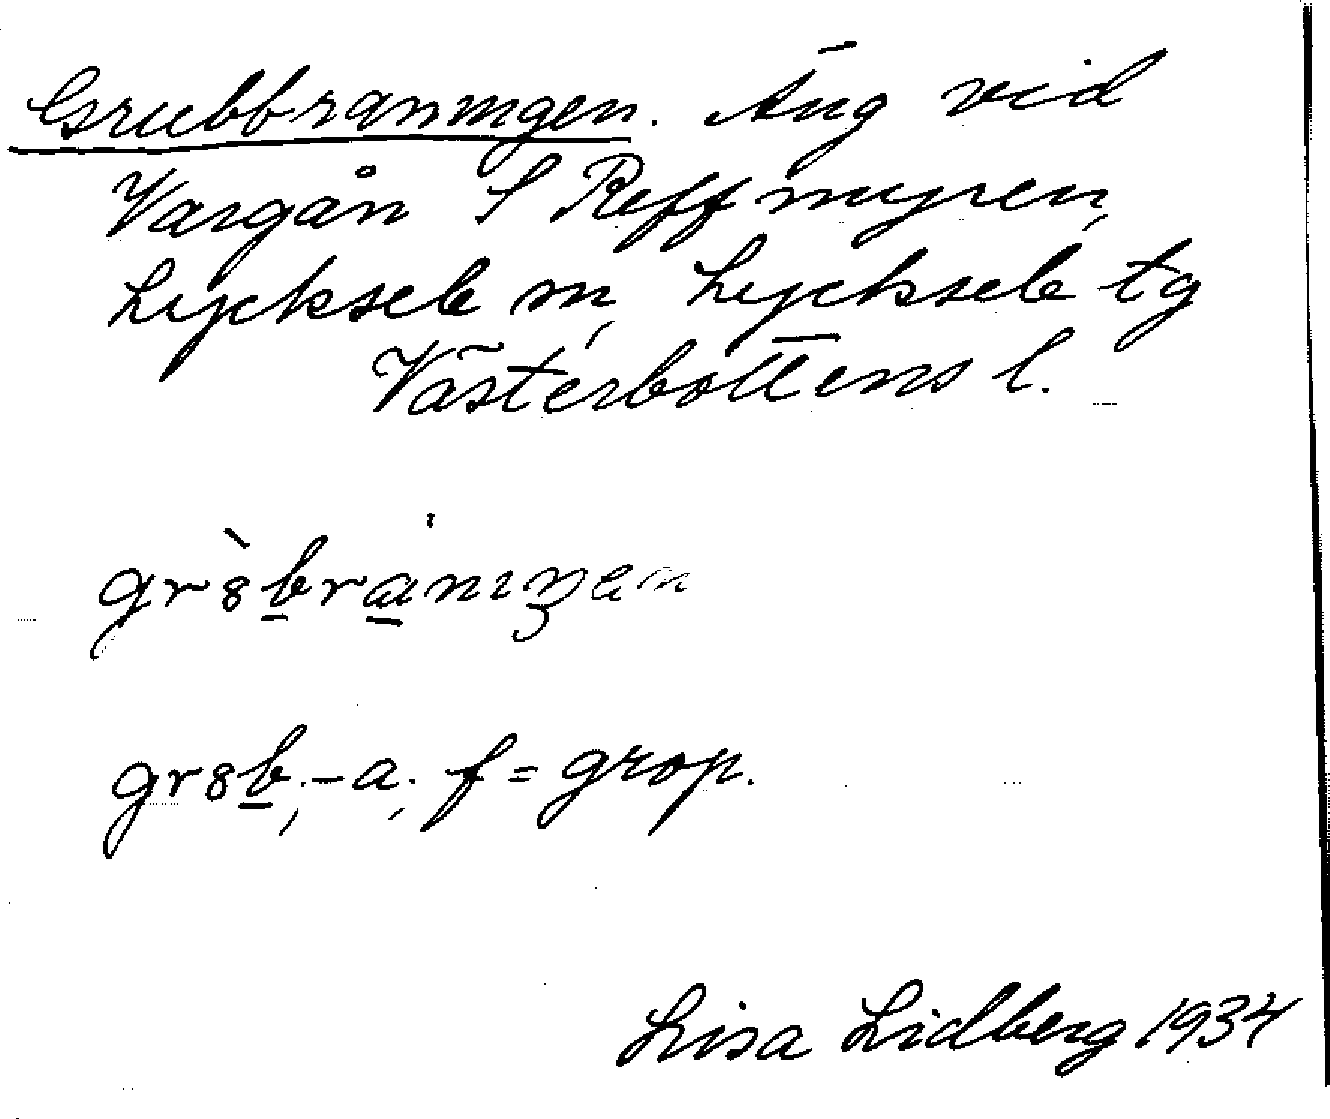 Grubbraningen. Äng vid
Vargån S Reffmyren,
Lycksele m, Lycksele tg
Västerbottens l.
gr8̀b̲ra̲niŋen
gr8b̲, -a, f = grop.
Lisa Lidberg 1934